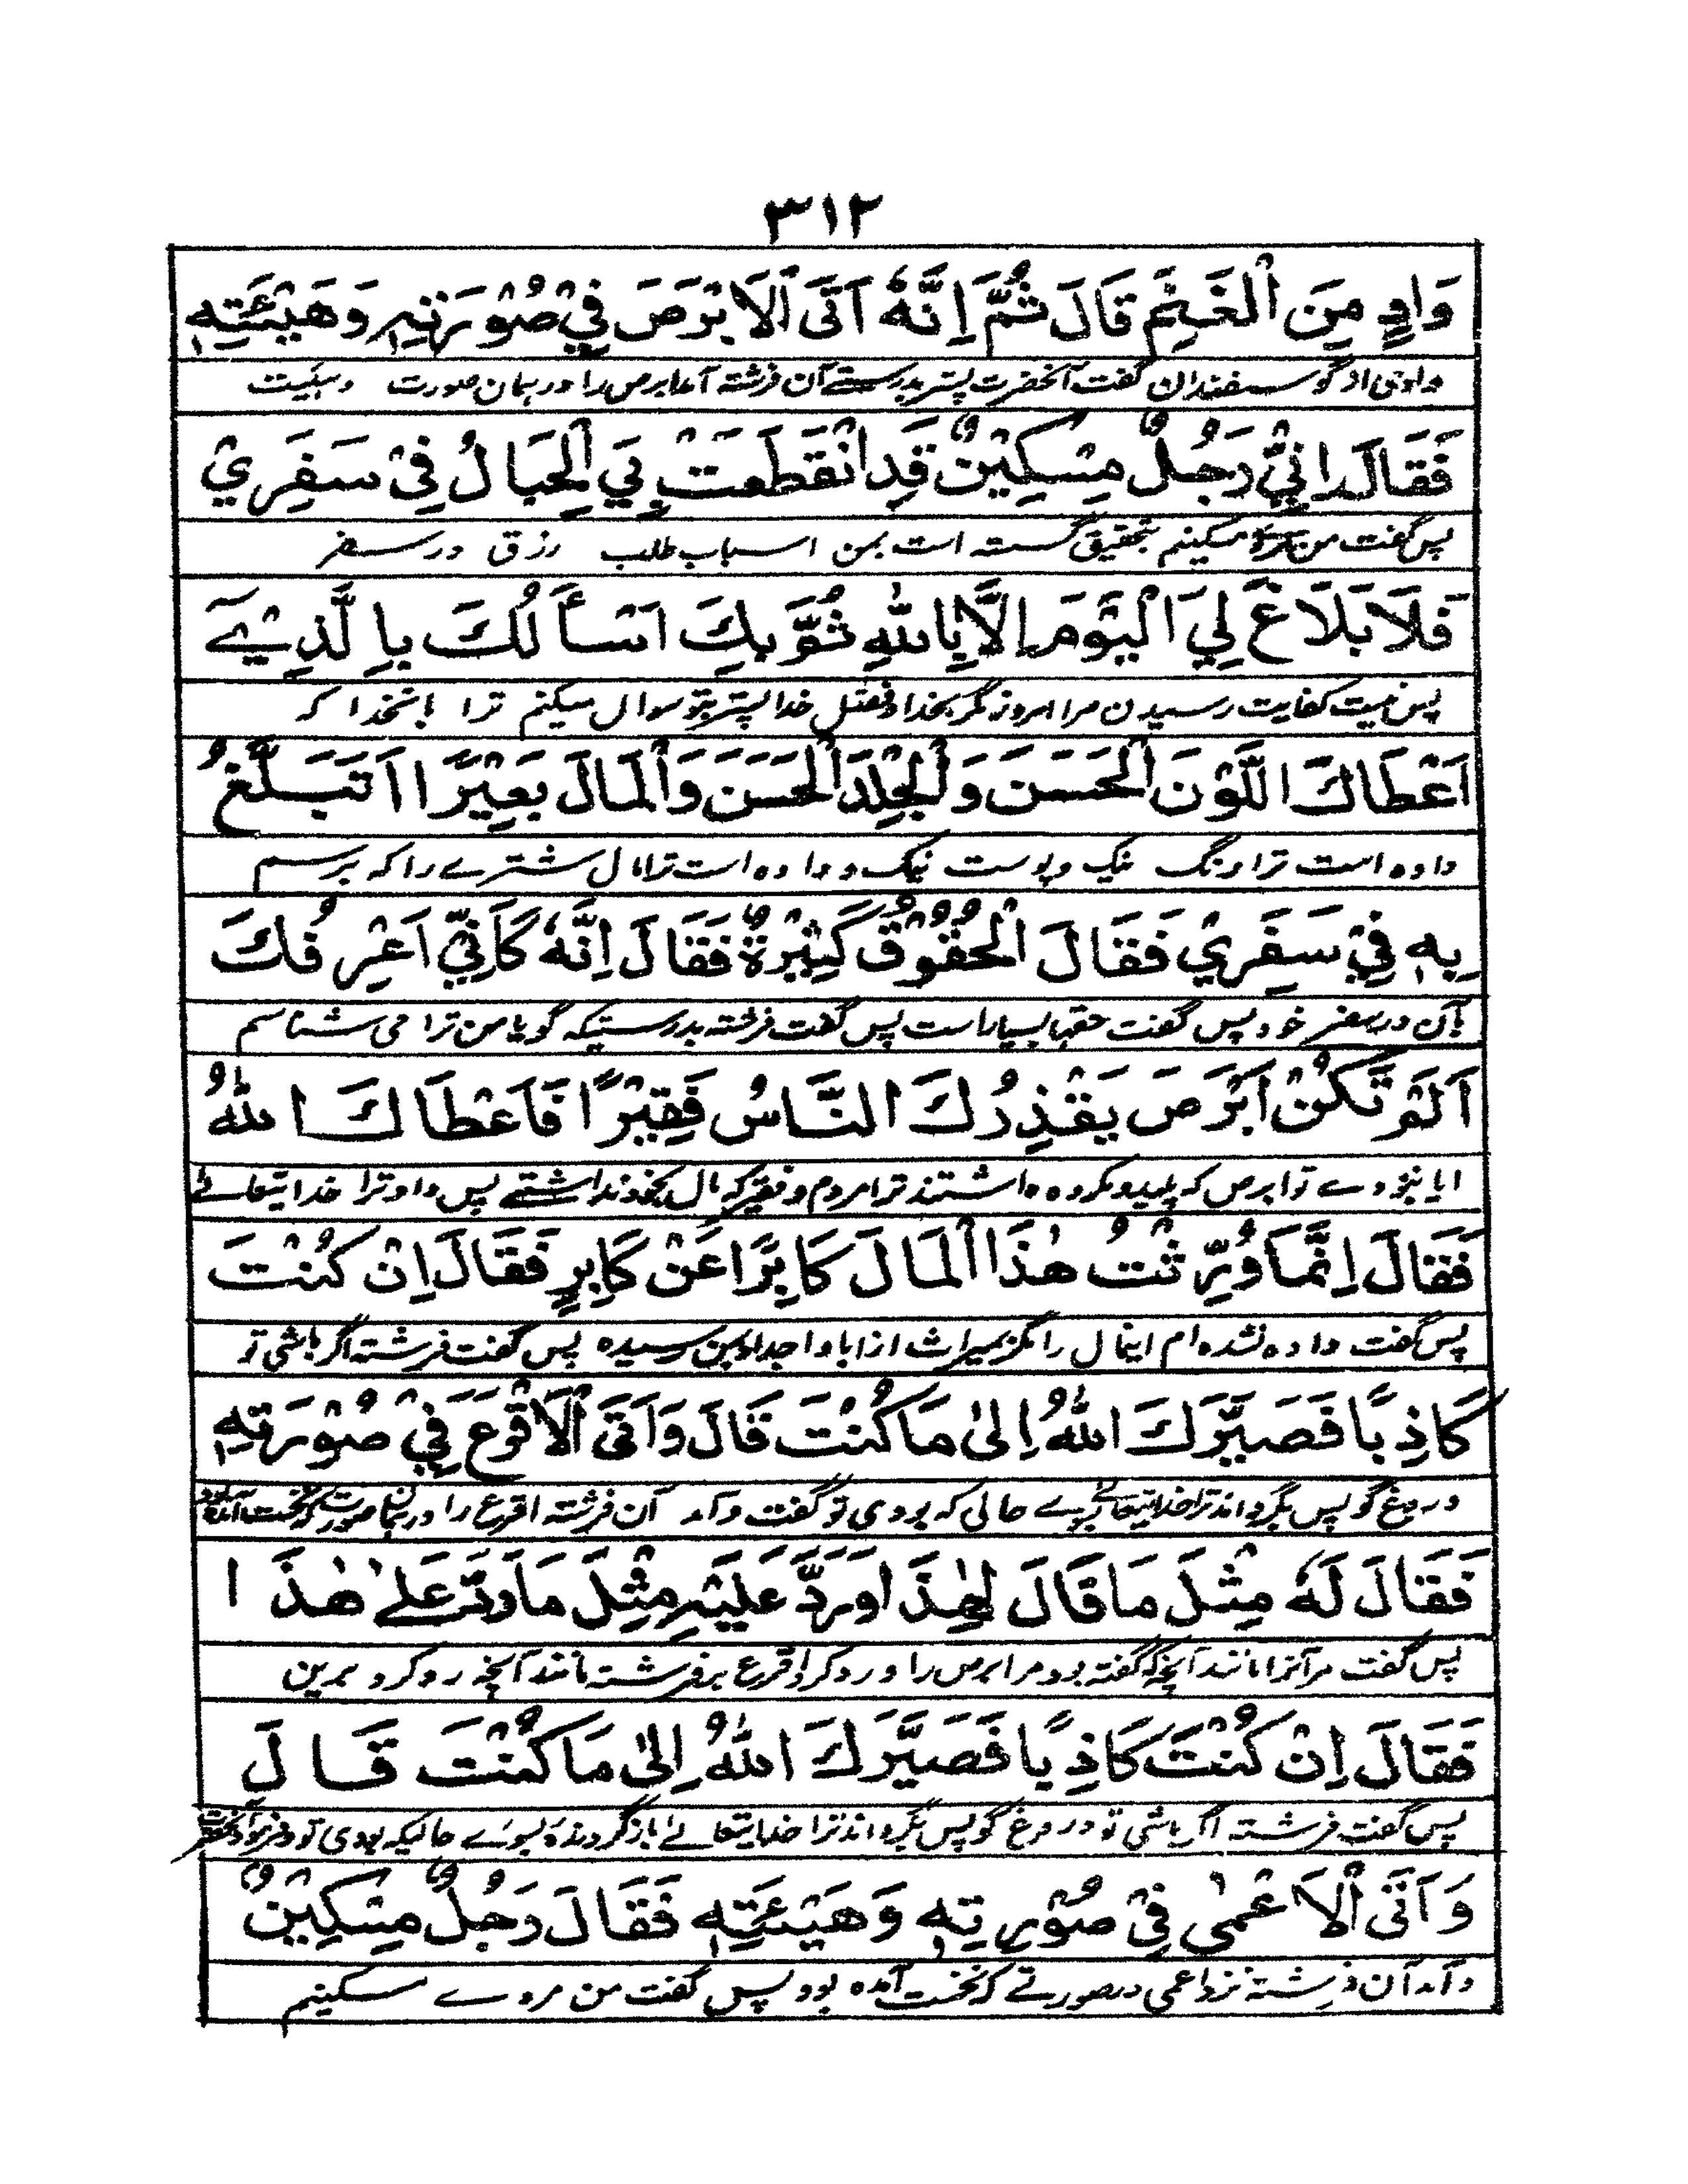 ٣١٢
وَادٍ مِنَ الْغَنَمِ قَالَ ثُمَّ اِنَّهٗ اَتَى الْاَبْرَصَ فِيْ صُوْرَتِهٖ وَهَيْئَتِهٖ
وادی از گوسفندان گفت آنحضرت پستر بدرستے آن فرشته آمد ابرص را در ہمان صورت وہیئت
فَقَالَ اِنِّيْ رَجُلٌ مِسْكِيْنٌ قَدِ انْقَطَعَتْ بِيَ الْحِبَالُ فِيْ سَفَرِيْ
پس گفت من مردے مسکینم بتحقیق گسسته است بمن اسباب طلب رزق در سفر
فَلَا بَلَاغَ لِيَ الْيَوْمَ اِلَّا بِاللّٰهِ ثُمَّ بِكَ اَسْأَلُكَ بِالَّذِيْٓ
پس نیست کفایت رسیدن مرا امروز مگر بخدا و فضل خدا پستر بتو سوال میکنم ترا بآنخدا که
اَعْطَاكَ اللَّوْنَ الْحَسَنَ وَالْجِلْدَ الْحَسَنَ وَالْمَالَ بَعِيْرًا اَتَبَلَّغُ
داده است ترا رنگ نیک و پوست نیک و داده است ترا مال شترے را که برسم
بِهٖ فِيْ سَفَرِيْ فَقَالَ الْحُقُوْقُ كَثِيْرَةٌ فَقَالَ اِنَّهٗ كَاَنِّيْ اَعْرِفُكَ
بآن در سفر خود پس گفت حقہا بسیار است پس گفت فرشته بدرستیکه گویا من ترا می شناسم
اَلَمْ تَكُنْ اَبْرَصَ يَقْذِرُكَ النَّاسُ فَقِيْرًا فَاَعْطَاكَ اللّٰهُ
ایا نبودے تو ابرص که پلید و مکروه داشتند ترا مردم و فقیر که مال بخود نداشتے پس داد ترا خدایتعالےٰ
فَقَالَ اِنَّمَا وُرِّثْتُ هٰذَا الْمَالَ كَابِرًا عَنْ كَابِرٍ فَقَالَ اِنْ كُنْتَ
پس گفت داده نشده ام اینمال را مگر بمیراث از ابا و اجداد بمن رسیده پس گفت فرشته اگر باشی تو
كَاذِبًا فَصَيَّرَكَ اللّٰهُ اِلٰى مَا كُنْتَ قَالَ وَاَتَى الْاَقْرَعَ فِيْ صُوْرَتِهٖ
دروغ گو پس بگرداند ترا خدایتعالےٰ حالی که بودی تو گفت و آمد آن فرشته اقرع را در ہمان صورت که نخست آمده بود
فَقَالَ لَهٗ مِثْلَ مَا قَالَ لِهٰذَا وَرَدَّ عَلَيْهِ مِثْلَ مَا رَدَّ عَلٰى هٰذَا
پس گفت مر آنرا مانند آنچه که گفته بود مر ابرص را و رد کرد اقرع بر فرشته مانند آنچه رد کرد برین
فَقَالَ اِنْ كُنْتَ كَاذِبًا فَصَيَّرَكَ اللّٰهُ اِلٰى مَا كُنْتَ قَالَ
پس گفت فرشته اگر باشی تو دروغ گو پس بگرداند ترا خدایتعالےٰ باز گردنده بسوے حالیکه بودی تو و فرمود آنحضرت
وَاَتَى الْاَعْمٰى فِيْ صُوْرَتِهٖ وَهَيْئَتِهٖ فَقَالَ رَجُلٌ مِسْكِيْنٌ
و آمد آن فرشته نزد اعمی در صورتے که نخست آمده بود پس گفت من مردے مسکینم